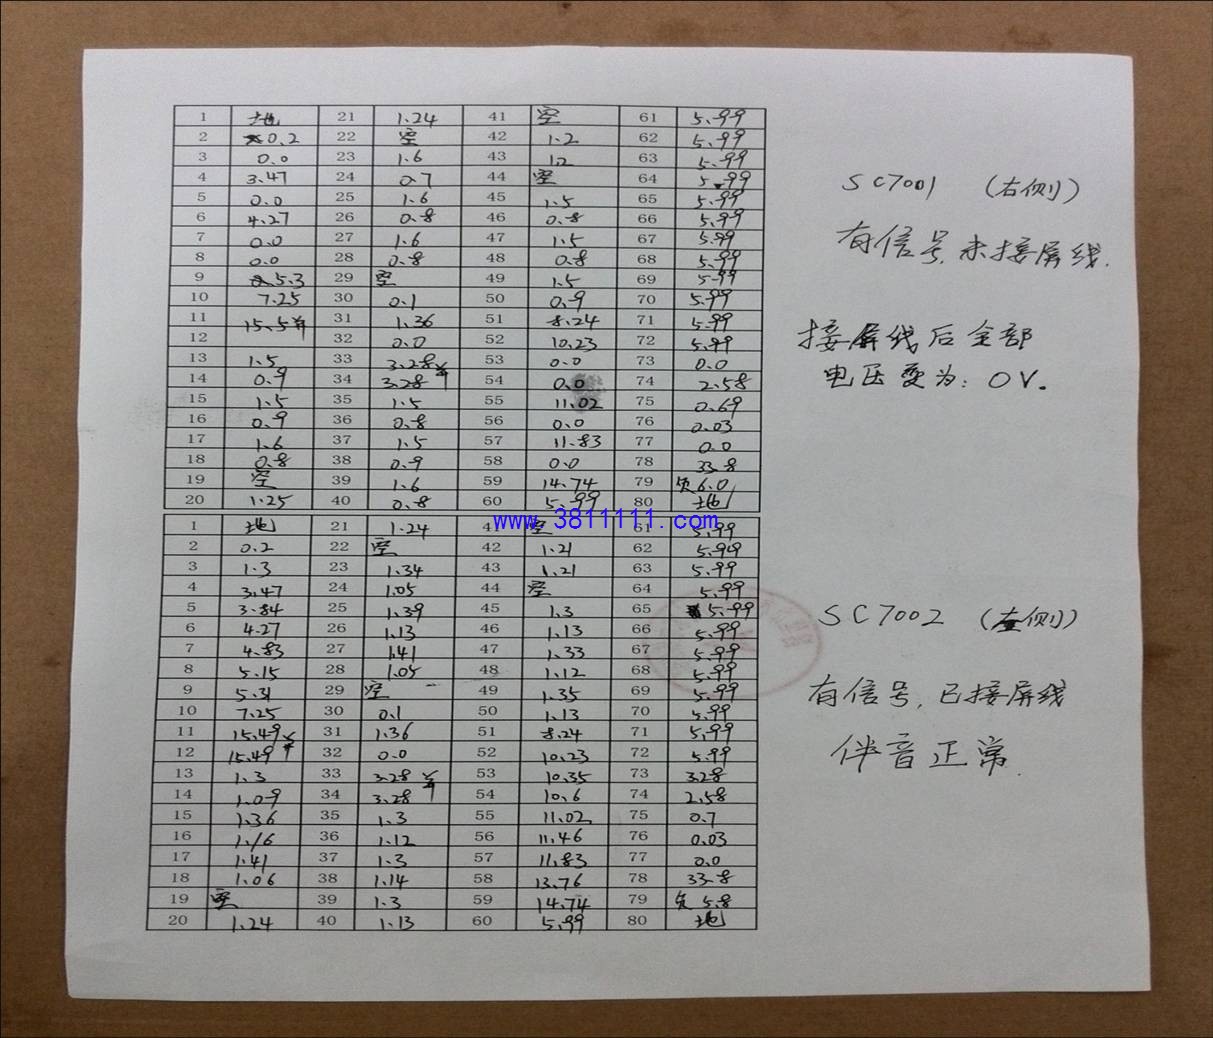 1 地 21 1.24 41 空 61 5.99
2 0.2 22 空 42 1.2 62 5.99
3 0.0 23 1.6 43 1.2 63 5.99
4 3.47 24 0.7 44 空 64 5.99
5 0.0 25 1.6 45 1.5 65 5.99
6 4.27 26 0.8 46 0.8 66 5.99
7 0.0 27 1.6 47 1.5 67 5.99
8 0.0 28 0.8 48 0.8 68 5.99
9 5.3 29 空 49 1.5 69 5.99
10 7.25 30 0.1 50 0.9 70 5.99
11 15.5 31 1.36 51 8.24 71 5.99
12 32 0.0 52 10.23 72 5.99
13 1.5 33 3.28 53 0.0 73 0.0
14 0.9 34 3.28 54 0.0 74 2.58
15 1.5 35 1.5 55 11.02 75 0.69
16 0.9 36 0.8 56 0.0 76 0.03
17 1.6 37 1.5 57 11.83 77 0.0
18 0.8 38 0.9 58 0.0 78 33.8
19 空 39 1.6 59 14.74 79 负6.0
20 1.25 40 0.8 60 5.99 80 地
SC7001 (右侧)
有信号,未接屏线.
接屏线后全部
电压变为: 0V.
www.3811111.com
1 地 21 1.24 41 空 61 5.99
2 0.2 22 空 42 1.21 62 5.99
3 1.3 23 1.34 43 1.21 63 5.99
4 3.47 24 1.05 44 空 64 5.99
5 3.84 25 1.39 45 1.3 65 5.99
6 4.27 26 1.13 46 1.13 66 5.99
7 4.83 27 1.41 47 1.33 67 5.99
8 5.15 28 1.05 48 1.12 68 5.99
9 5.31 29 空 49 1.35 69 5.99
10 7.25 30 0.1 50 1.13 70 5.99
11 15.49 31 1.36 51 8.24 71 5.99
12 15.49 32 0.0 52 10.23 72 5.99
13 1.3 33 3.28 53 10.35 73 3.28
14 1.09 34 3.28 54 10.6 74 2.58
15 1.36 35 1.3 55 11.02 75 0.7
16 1.16 36 1.12 56 11.46 76 0.03
17 1.41 37 1.3 57 11.83 77 0.0
18 1.06 38 1.14 58 13.76 78 33.8
19 空 39 1.3 59 14.74 79 负 5.8
20 1.24 40 1.13 60 5.99 80 地
SC7002 (左侧)
有信号,已接屏线
伴音正常.